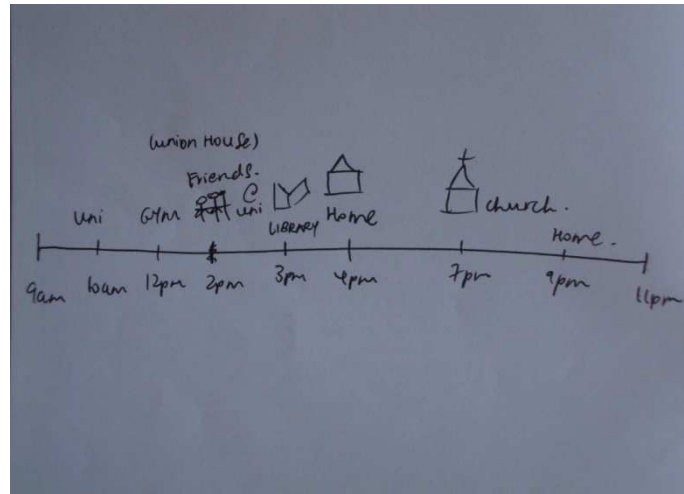 (union House)
Friends.
uni GYM @ uni LIBRARY Home church. Home.
9am 10am 12pm 2pm 3pm 4pm 7pm 9pm 11pm